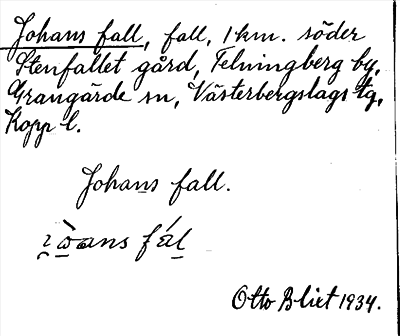 Johans fall, fall, 1 km. söder
Stenfallet gård, Telningberg by,
Grangärde sn, Västerbergslags tg,
Kopp l.
Johans fall.
Otto Blixt 1934.